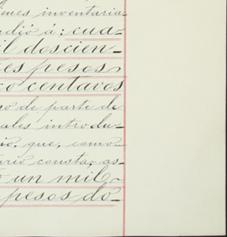 nes inventaria
dió á: cua=
il doscien=
es pesos
co centavos
o de parte de
ales introdu=
ió, que, como
ario consta, as=
o un mil
pesos do=